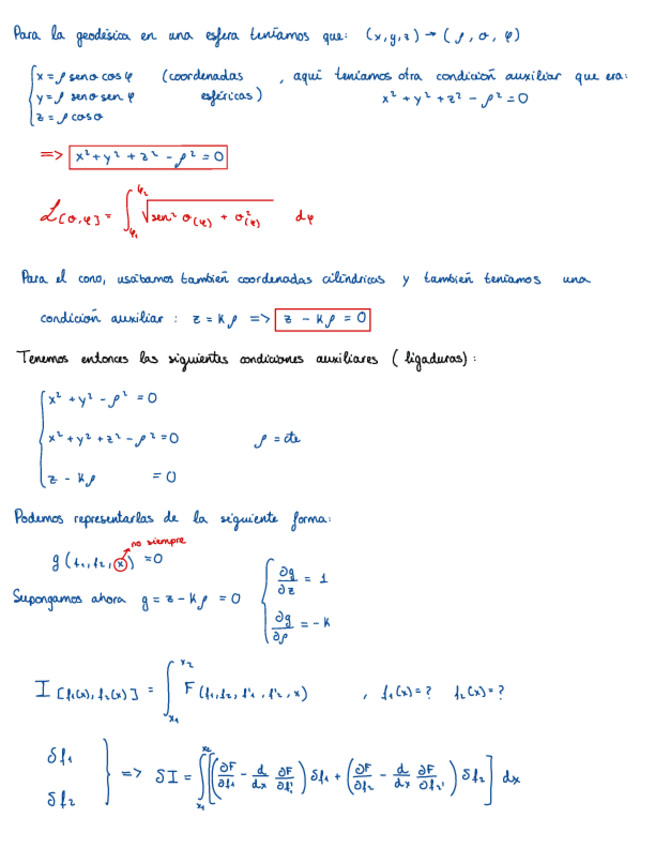 Para la geodésica en una esfera teníamos que: (x,y,z) → (ρ, σ, φ)
{ x = ρ senσ cosφ (coordenadas , aquí teníamos otra condición auxiliar que era:
y = ρ senσ sen φ esféricas) x² + y² + z² - ρ² = 0
z = ρ cosσ
=> x² + y² + z² - ρ² = 0
L[σ,φ] = ∫_{φ₁}^{φ₂} √(sen² σ(φ) + σ²(φ)) dφ
Para el cono, usábamos también coordenadas cilíndricas y también teníamos una
condición auxiliar : z = kρ => z - kρ = 0
Tenemos entonces las siguientes condiciones auxiliares (ligaduras):
{ x² + y² - ρ² = 0
x² + y² + z² - ρ² = 0 ρ = cte
z - kρ = 0
Podemos representarlas de la siguiente forma:
no siempre
g(f₁, f₂, x) = 0
Supongamos ahora g = z - kρ = 0 { ∂g/∂z = 1
∂g/∂ρ = -k
I[f₁(x), f₂(x)] = ∫_{x₁}^{x₂} F(f₁, f₂, f'₁, f'₂, x) , f₁(x) = ? f₂(x) = ?
δf₁
δf₂ } => δI = ∫_{x₁}^{x₂} [(∂F/∂f₁ - d/dx ∂F/∂f₁') δf₁ + (∂F/∂f₂ - d/dx ∂F/∂f₂') δf₂] dx